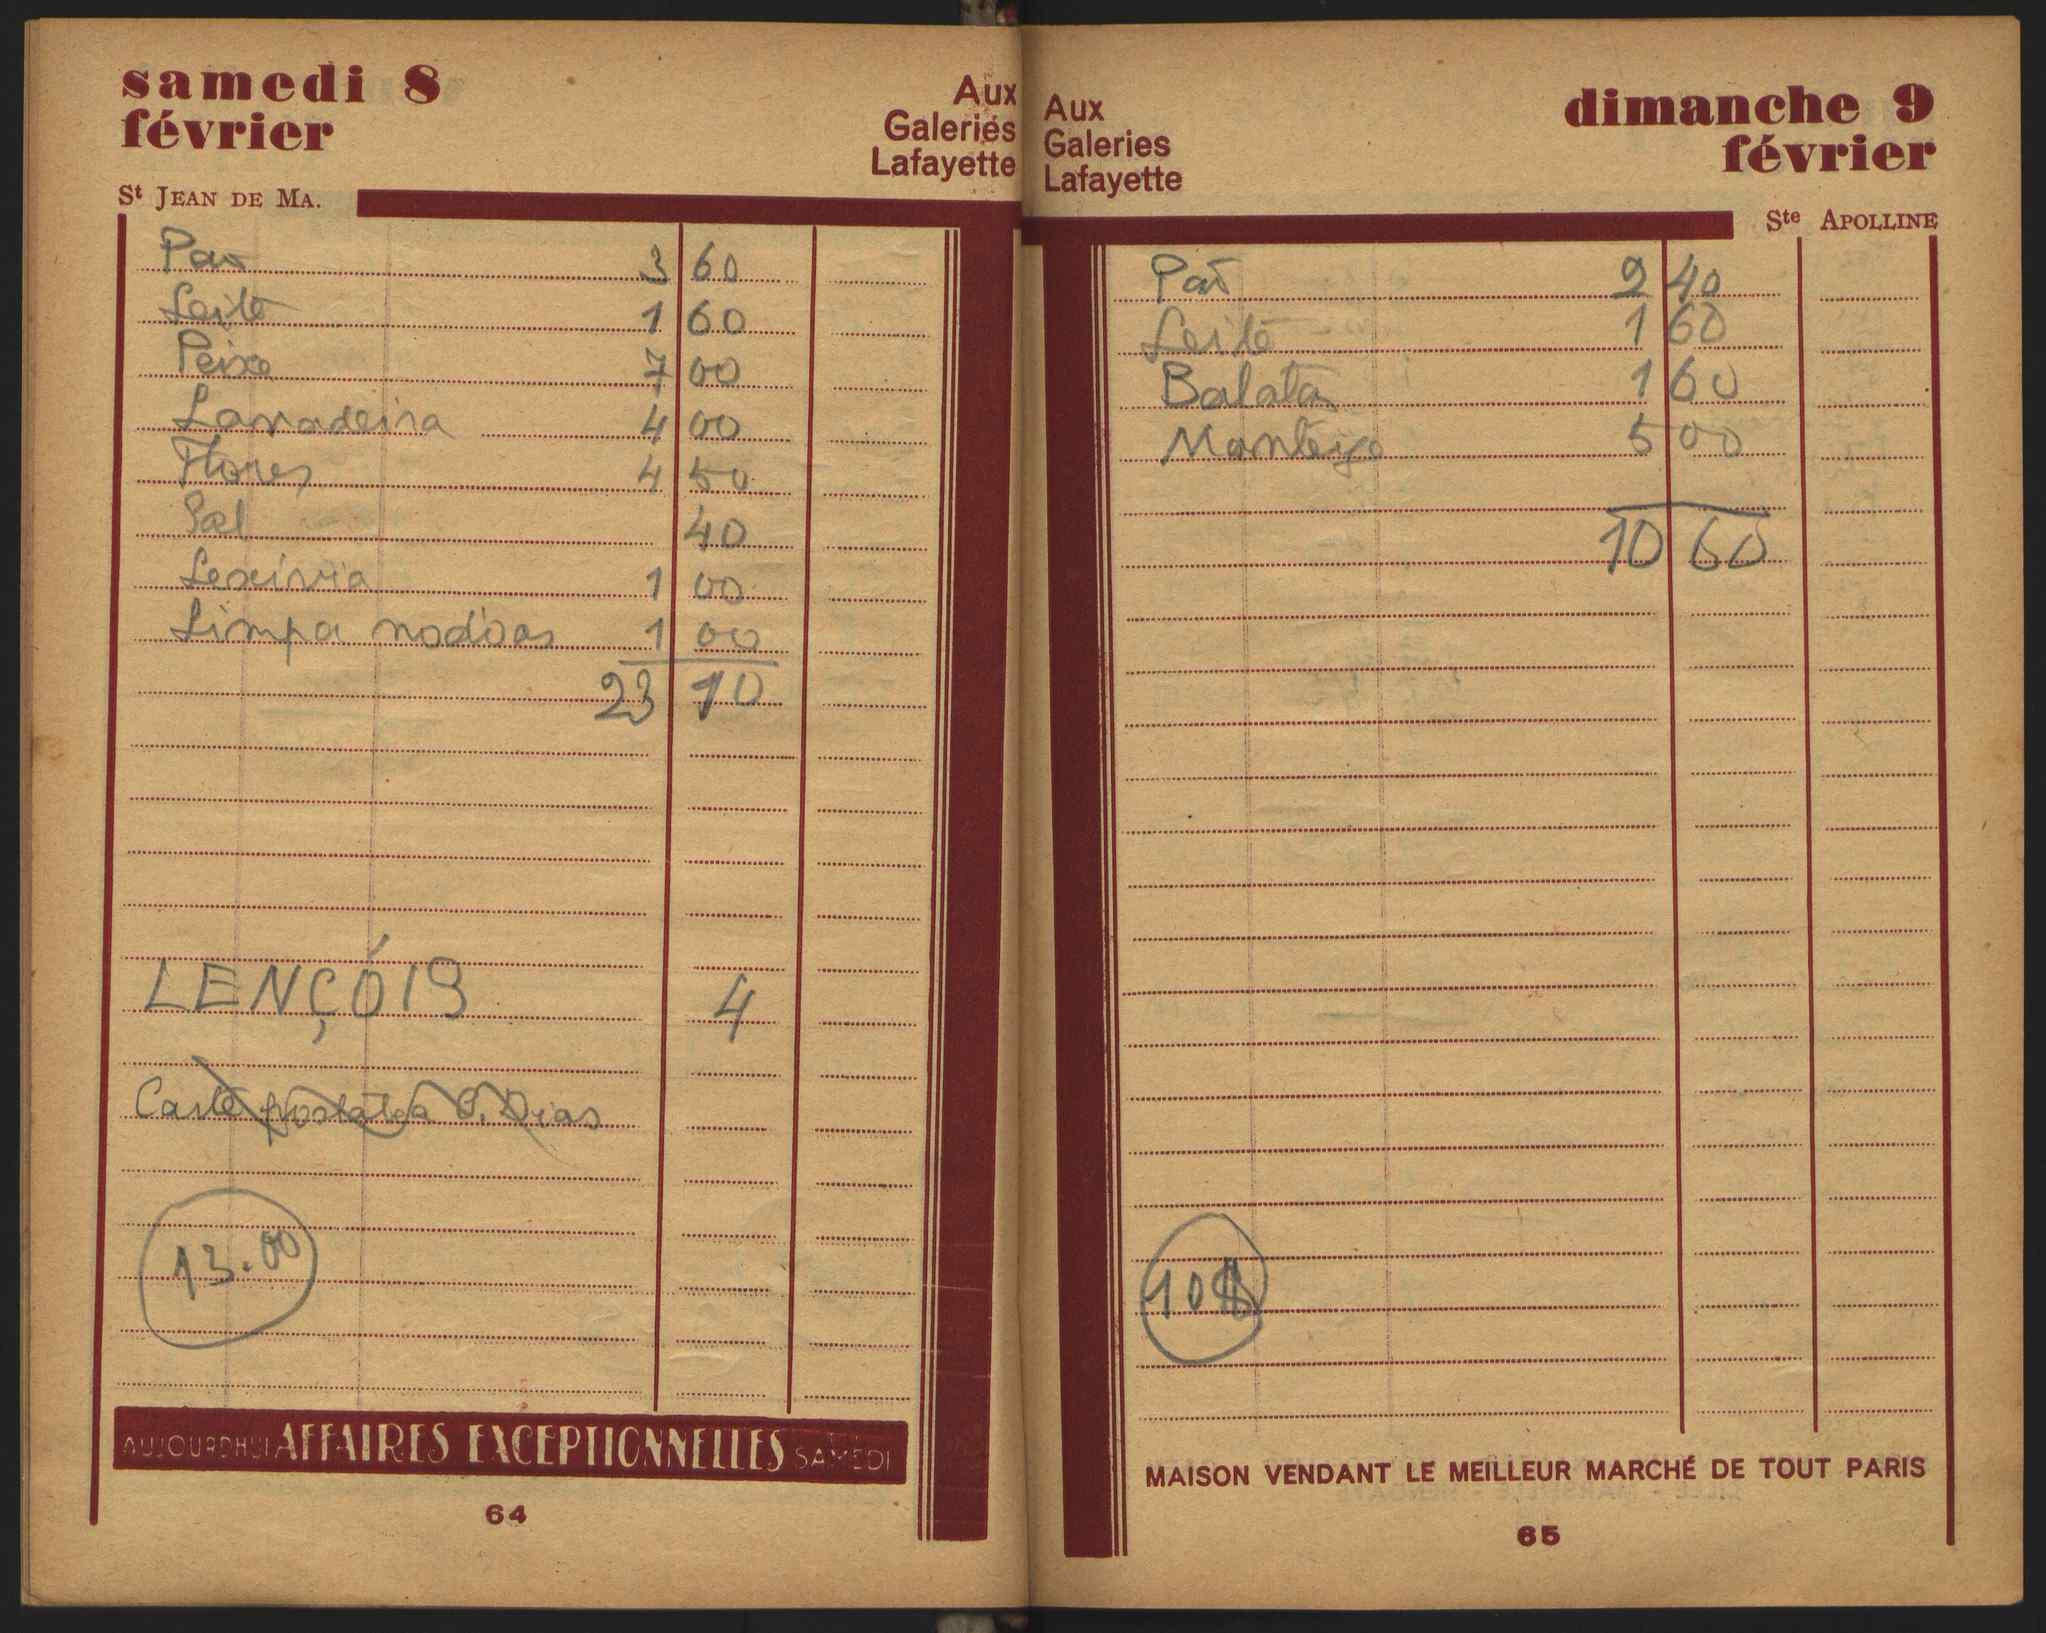 samedi 8
février
Aux
Galeries
Lafayette
St JEAN DE MA.
Pao 3 60
Leite 1 60
Peixe 7 00
Lavadeira 4 00
Flores 4 50
Sal 40
Lexivia 1 00
Limpa nodoas 1 00
23 10
LENÇÓIS 4
Carta postal S. Dias
13.00
AUJOURDHUI AFFAIRES EXCEPTIONNELLES SAMEDI
64
Aux
Galeries
Lafayette
dimanche 9
février
Ste APOLLINE
Pão 2 40
Leite 1 60
Batatas 1 60
Manteiga 5 00
10 60
10$
MAISON VENDANT LE MEILLEUR MARCHÉ DE TOUT PARIS
65